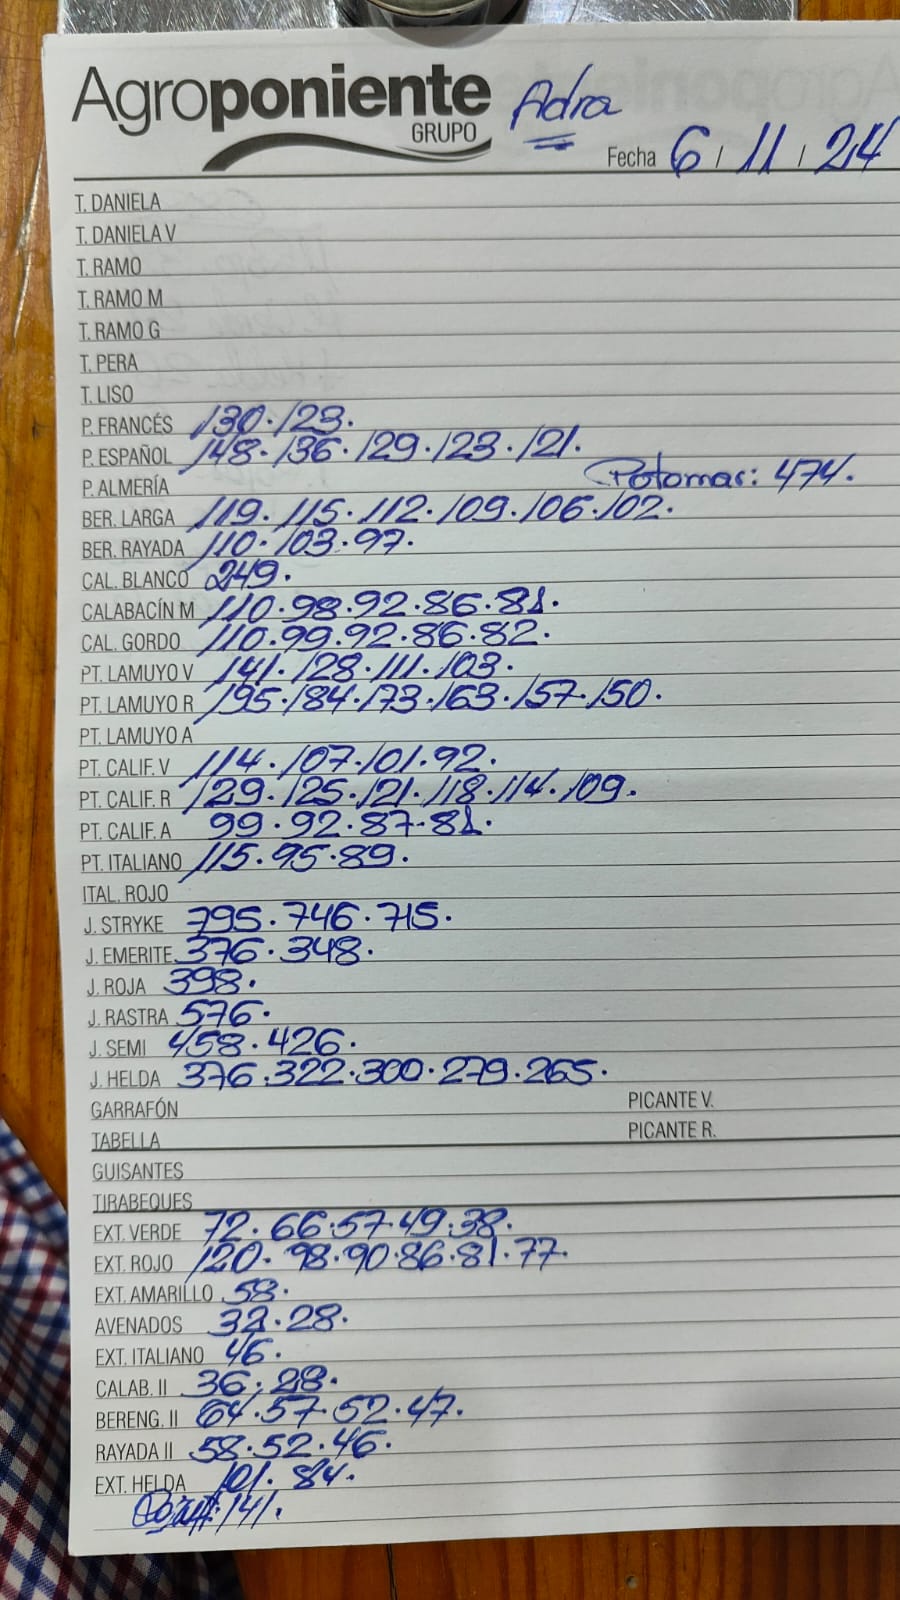 Agroponiente
GRUPO
Adra
Fecha 6 / 11 / 24
T. DANIELA
T. DANIELA V
T. RAMO
T. RAMO M
T. RAMO G
T. PERA
T. LISO
P. FRANCÉS 130. 123.
P. ESPAÑOL 148. 136. 129. 123. 121.
P. ALMERÍA Potomac: 474.
BER. LARGA 119. 115. 112. 109. 106. 102.
BER. RAYADA 110. 103. 97.
CAL. BLANCO 249.
CALABACÍN M 110. 98. 92. 86. 81.
CAL. GORDO 110. 99. 92. 86. 82.
PT. LAMUYO V 141. 128. 111. 103.
PT. LAMUYO R 195. 184. 173. 163. 157. 150.
PT. LAMUYO A
PT. CALIF. V 114. 107. 101. 92.
PT. CALIF. R 129. 125. 121. 118. 114. 109.
PT. CALIF. A 99. 92. 87. 81.
PT. ITALIANO 115. 95. 89.
ITAL. ROJO
J. STRYKE 795. 746. 715.
J. EMERITE 376. 348.
J. ROJA 398.
J. RASTRA 576.
J. SEMI 458. 426.
J. HELDA 376. 322. 300. 279. 265.
GARRAFÓN PICANTE V.
TABELLA PICANTE R.
GUISANTES
TIRABEQUES
EXT. VERDE 72. 66. 57. 49. 38.
EXT. ROJO 120. 98. 90. 86. 81. 77.
EXT. AMARILLO 58.
AVENADOS 32. 28.
EXT. ITALIANO 46.
CALAB. II 36. 28.
BERENG. II 64. 57. 52. 47.
RAYADA II 58. 52. 46.
EXT. HELDA 101. 84.
141.